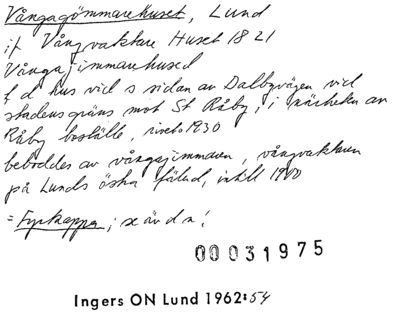 Vångagömmarehuset, Lund
if Vångvaktare Huset 1821
Vångagjimmarehused
f d hus vid s sidan av Dalbyvägen vid
stadens gräns mot St Råby, i närheten av
Råby boställe, rivet 1930
beboddes av vångagjimmaren, vångvaktaren
på Lunds östra fälad, intill 1900
= Fyrkappa; se äv d n!
00031975
Ingers ON Lund 1962:54